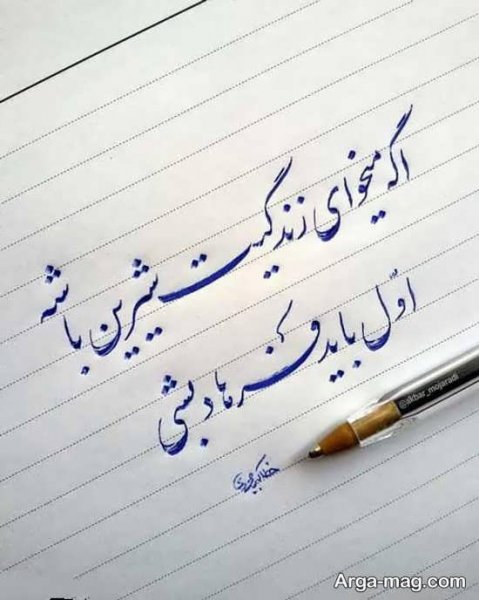 اگه میخوای زندگیت شیرین باشه
اوّل باید فرهاد بشی
@akbar_mojaradi
Arga-mag.com